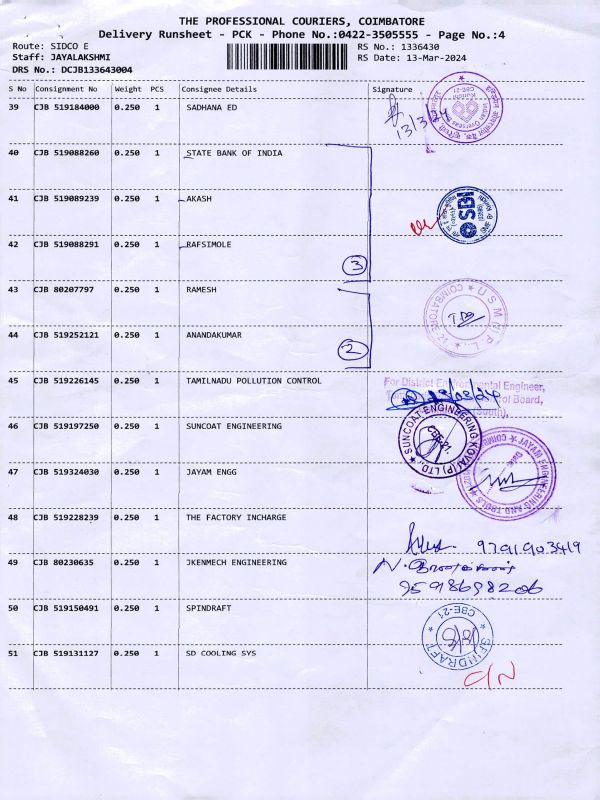 THE PROFESSIONAL COURIERS, COIMBATORE
Delivery Runsheet - PCK - Phone No.:0422-3505555 - Page No.:4
Route: SIDCO E
RS No.: 1336430
Staff: JAYALAKSHMI
RS Date: 13-Mar-2024
DRS No.: DCJB133643004
S No Consignment No Weight PCS Consignee Details Signature
39 CJB 519184000 0.250 1 SADHANA ED
13/3/24
40 CJB 519088260 0.250 1 STATE BANK OF INDIA
41 CJB 519089239 0.250 1 AKASH
SBI
42 CJB 519088291 0.250 1 RAFSIMOLE
3
43 CJB 80207797 0.250 1 RAMESH
U S M (I) P. L.
COIMBATORE-21
44 CJB 519252121 0.250 1 ANANDAKUMAR
2
45 CJB 519226145 0.250 1 TAMILNADU POLLUTION CONTROL
For District Environmental Engineer,
46 CJB 519197250 0.250 1 SUNCOAT ENGINEERING
SUNCOAT ENGINEERING KOVAI (P) LTD
CBE-21.
47 CJB 519324030 0.250 1 JAYAM ENGG
JAYAM ENGINEERING AND TOOLS
48 CJB 519228239 0.250 1 THE FACTORY INCHARGE
9791903419
49 CJB 80230635 0.250 1 JKENMECH ENGINEERING
9598698206
50 CJB 519150491 0.250 1 SPINDRAFT
CBE-21
SPINDRAFT
51 CJB 519131127 0.250 1 SD COOLING SYS
C/N